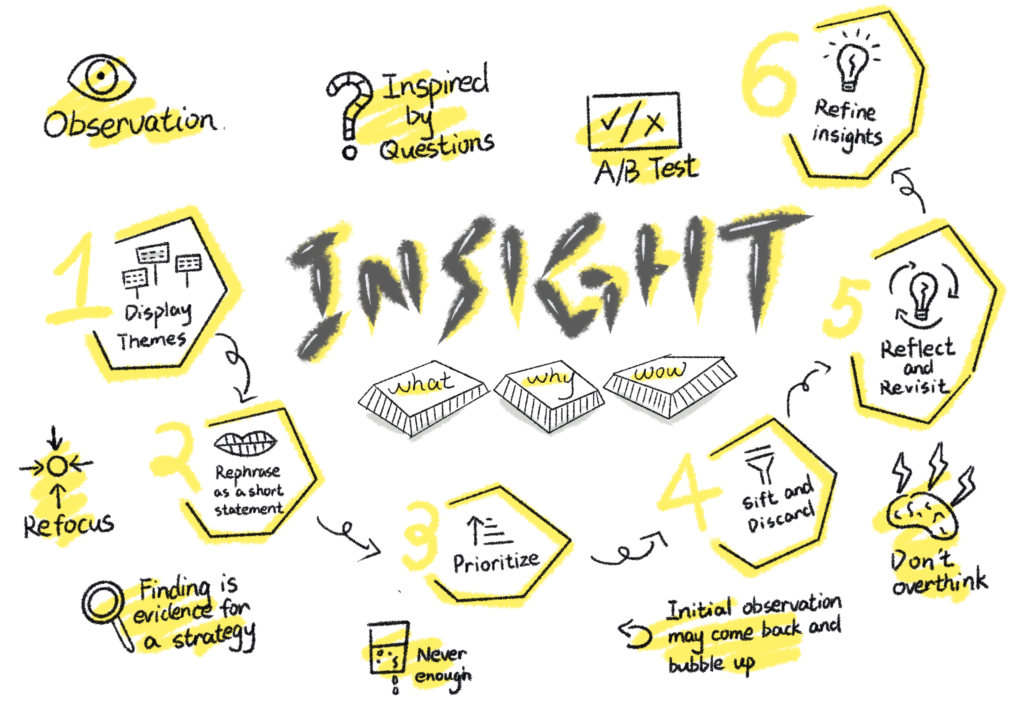 Observation.
?
Inspired
by
Questions
✓/x
A/B Test
6
Refine
insights
INSIGHT
what
why
wow
1
Display
Themes
2
Rephrase
as a short
statement
3
Prioritize
4
Sift and
Discard
5
Reflect
and
Revisit
Refocus
Finding is
evidence for
a strategy
Never
enough
Initial observation
may come back and
bubble up
Don't
overthink